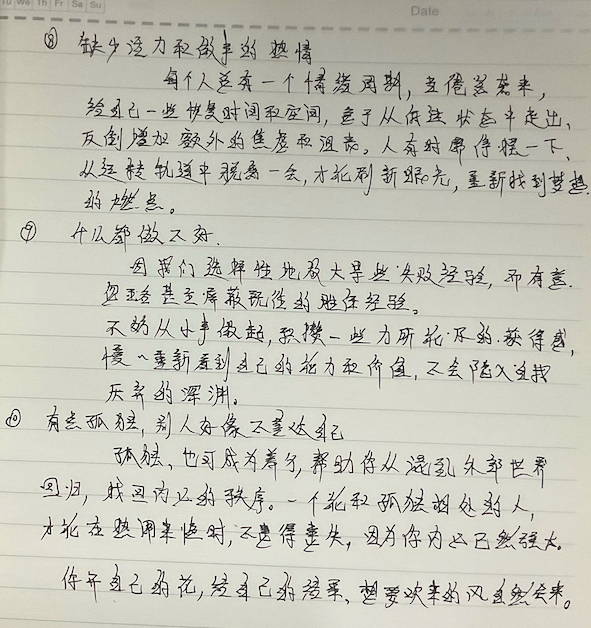 Tu We Th Fr Sa Su
Date
⑧ 缺少活力和做事的热情
每个人总有一个情绪周期，当倦怠袭来，
给自己一些恢复时间和空间，急于从低迷状态中走出，
反倒增加额外的焦虑和沮丧。人有时需停摆一下，
从运转轨道中脱离一会，才能刷新眼光，重新找到梦想
的燃点。
⑨ 什么都做不好.
因我们选择性地放大某些失败经验，而有意
忽略甚至屏蔽既往的胜任经验。
不妨从小事做起，积攒一些力所能及的获得感，
慢慢重新看到自己的能力和价值，不会陷入自我
厌弃的深渊。
⑩ 有点孤独，别人好像不喜欢自己
孤独、也可成为养分，帮助你从混乱外部世界
回归，找回内心的秩序。一个能和孤独相处的人，
才能在热闹来临时，不患得患失，因为你内心已然强大。
你开自己的花，结自己的结果、想要吹来的风自然会来。